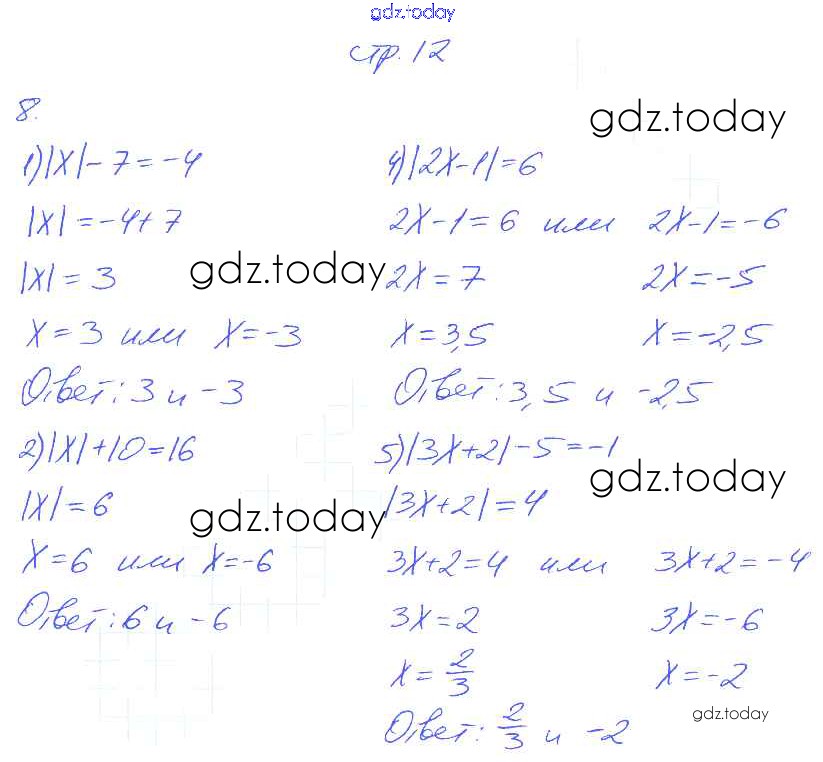 gdz.today
стр. 12
8.
gdz.today
1) |x| - 7 = -4
|x| = -4 + 7
|x| = 3
gdz.today
x = 3 или x = -3
Ответ: 3 и -3
2) |x| + 10 = 16
|x| = 6
gdz.today
x = 6 или x = -6
Ответ: 6 и -6
4) |2x - 1| = 6
2x - 1 = 6 или 2x - 1 = -6
2x = 7 2x = -5
x = 3,5 x = -2,5
Ответ: 3,5 и -2,5
5) |3x + 2| - 5 = -1
gdz.today
|3x + 2| = 4
3x + 2 = 4 или 3x + 2 = -4
3x = 2 3x = -6
x = 2/3 x = -2
gdz.today
Ответ: 2/3 и -2